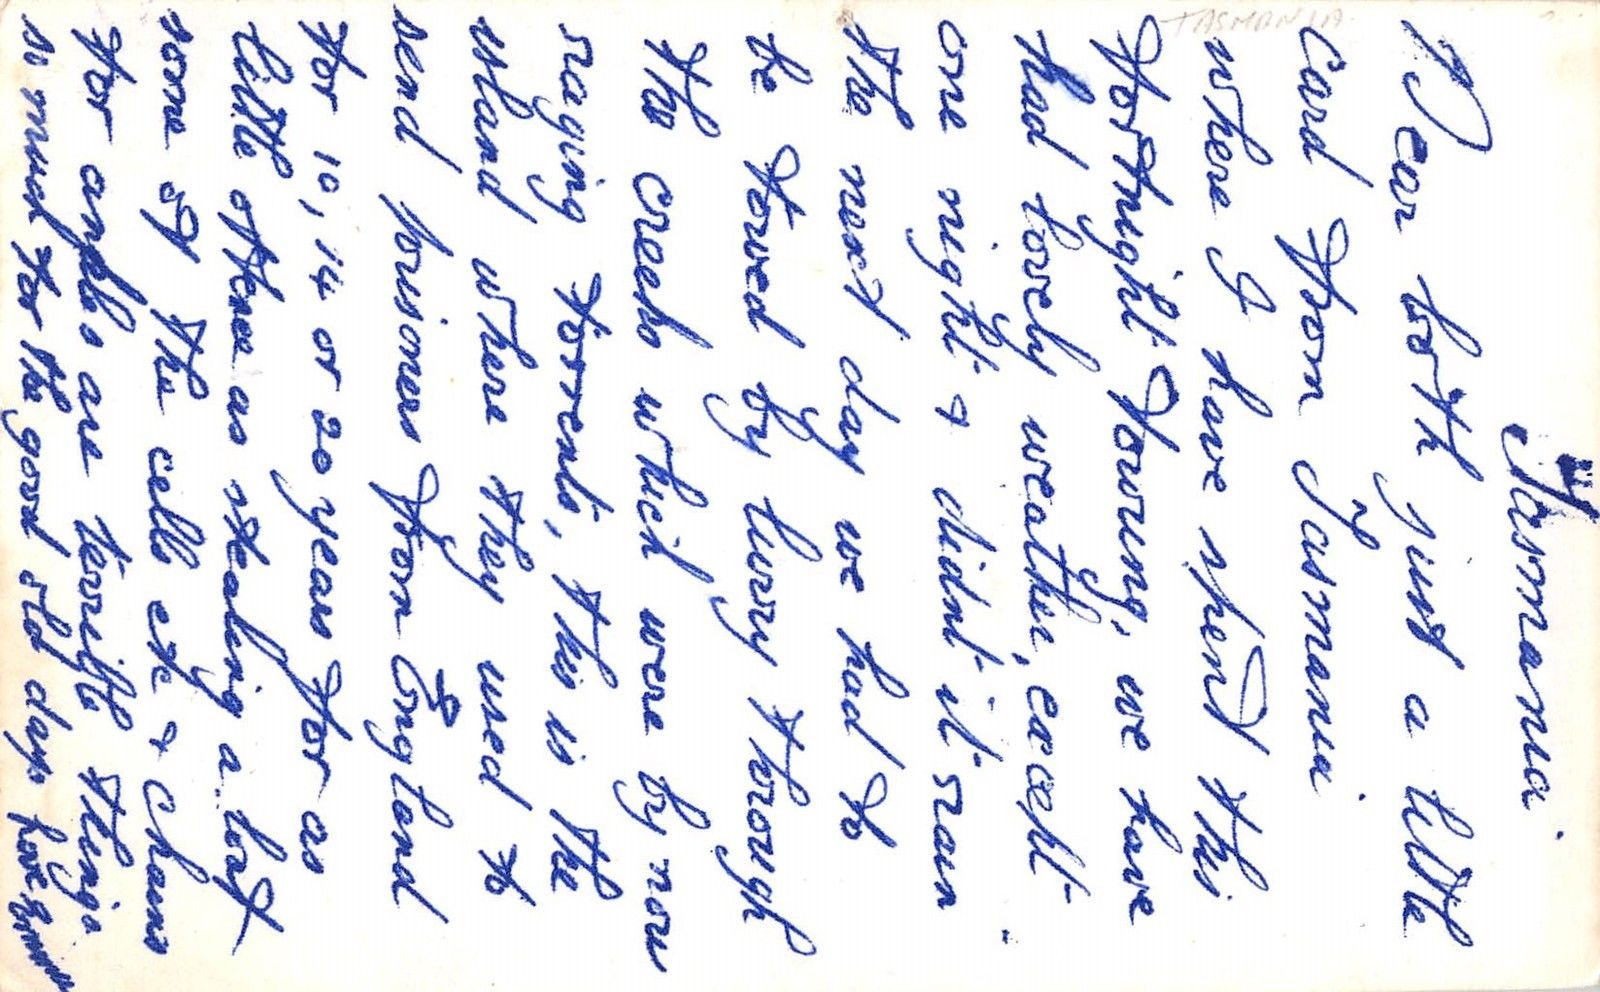 TASMANIA
Tasmania.
Dear both just a little
card from Tasmania
where I have spent this
fortnight touring, we have
had lovely weather, except
one night & didnt it rain
the next day we had to
be towed by lurry through
the creeks which were by now
raging torrents, this is the
island where they used to
send prisoners from England
for 10, 14 or 20 years for as
little offence as stealing a loaf
some of the cells etc & chains
for ankles are terrible things
so much for the good old days love